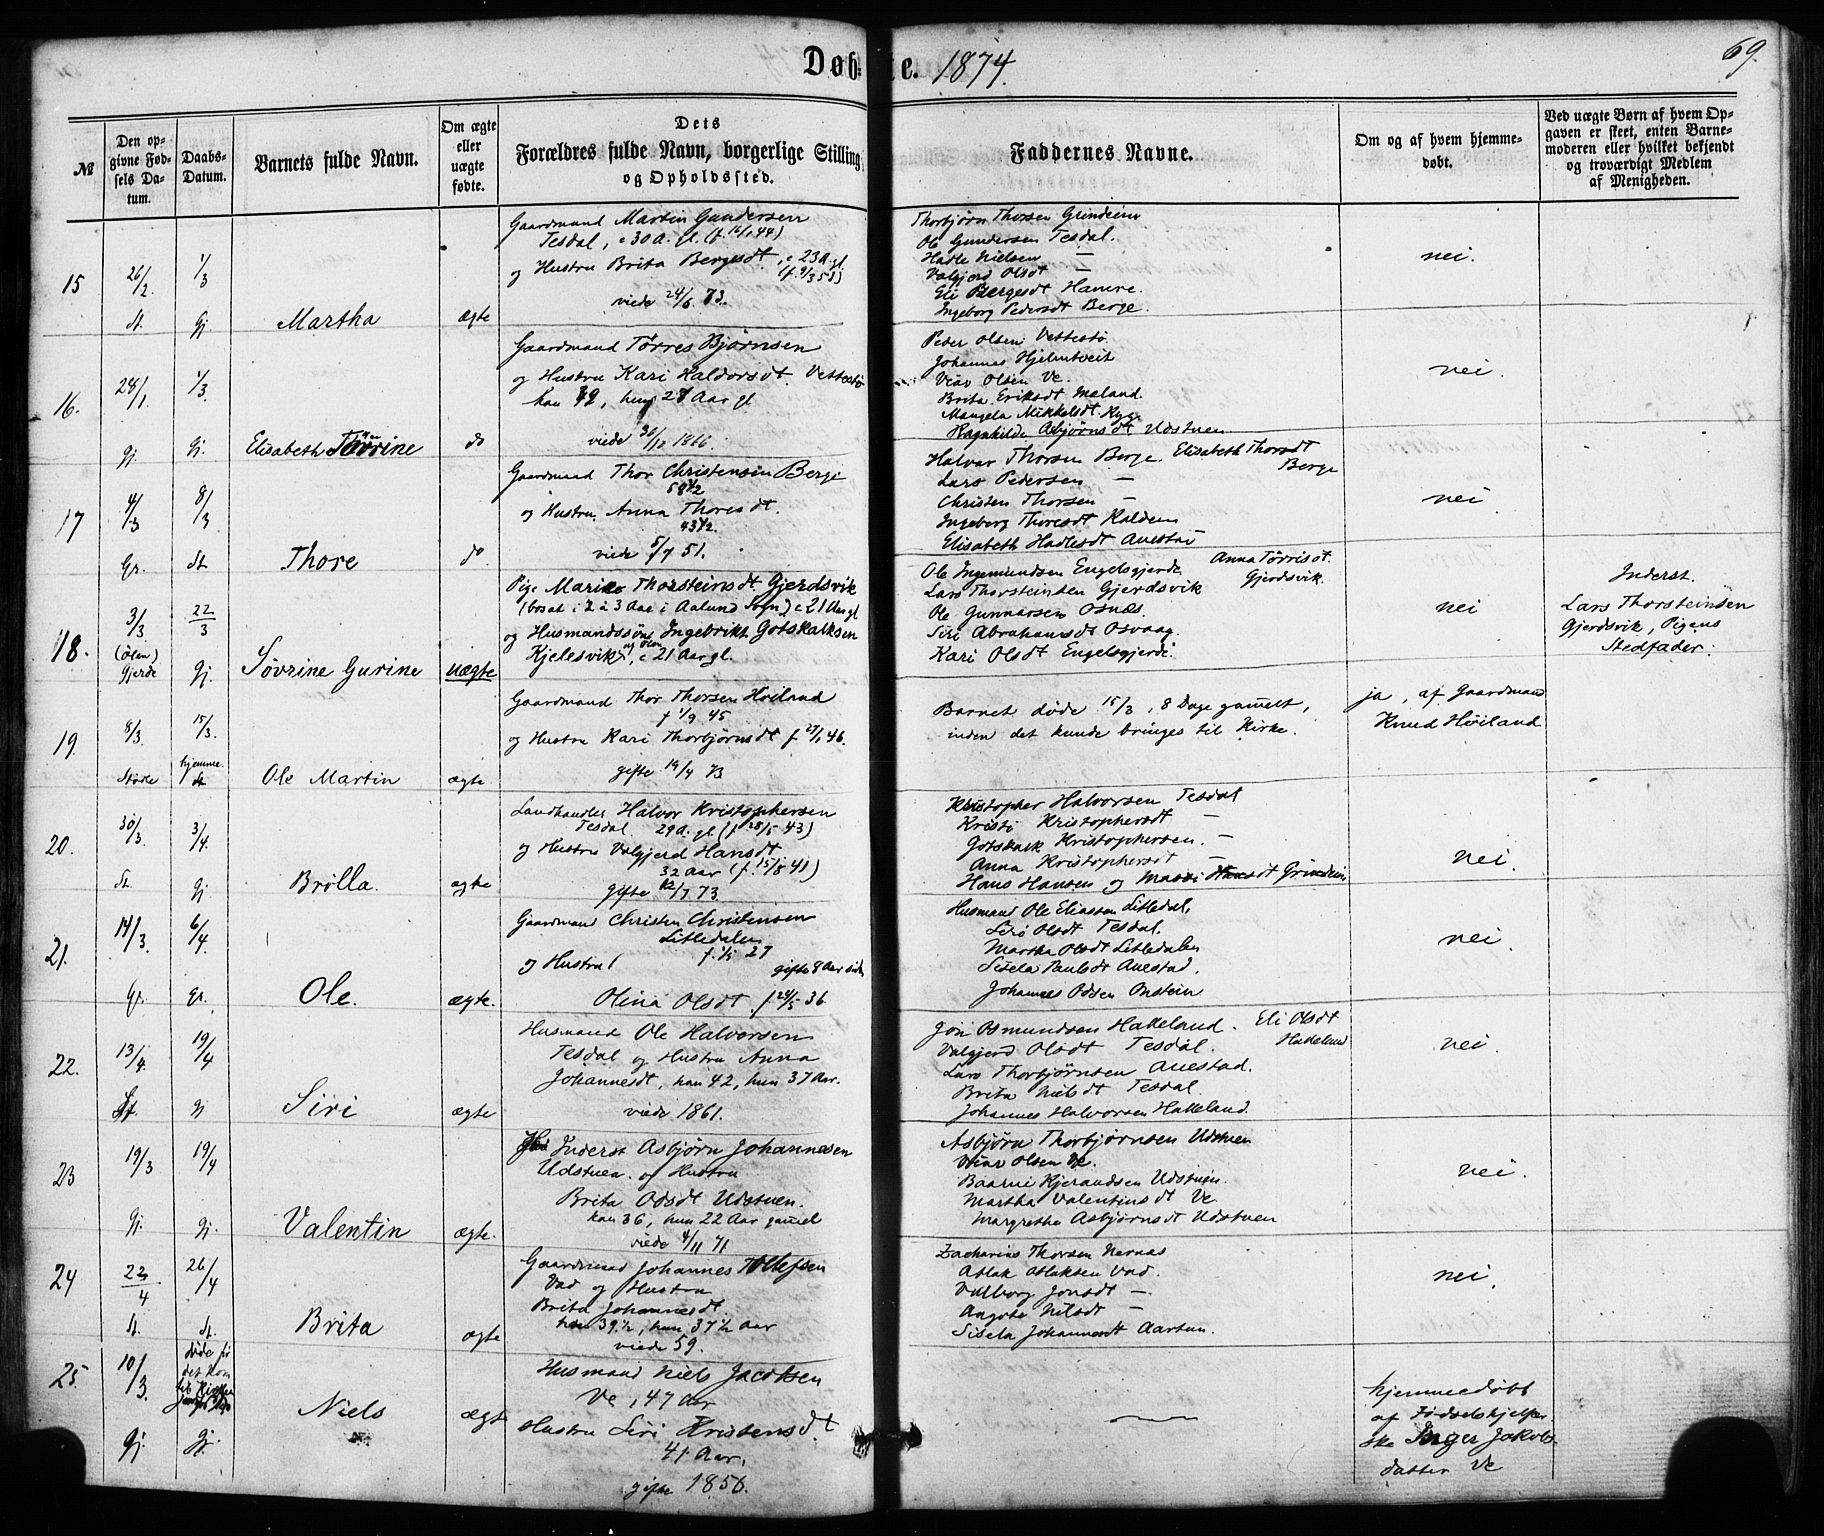 Døbte. 1874.
69.
№
Den opgivne Fødsels Datum.
Daabs-Datum.
Barnets fulde Navn.
Om ægte eller uægte fødte.
Dets Forældres fulde Navn, borgerlige Stilling og Opholdssted.
Faddernes Navne.
Om og af hvem hjemmedøbt.
Ved uægte Børn af hvem Opgaven er skeet, enten Barnemoderen eller hvilket bekjendt og troværdigt Medlem af Menigheden.
15
26/2.
st.
1/3
Gj.
Martha
ægte
Gaardmand Martin Gundersen
Tesdal, c 30 A. gl.
og Hustru Brita Bergesdt., c 23 A. gl
viede 24/6 73.
Thorbjørn Thorsen Grindeim
Ole Gundersen Tesdal.
Hadle Nielsen —
Valgjerd Olsdt —
Eli Bergesdt Hamre.
Ingeborg Pedersdt Berge.
nei.
16.
28/1.
Gj.
1/3.
Gj.
Elisabeth Tørrine
do
Gaardmand Tørres Bjørnsen
og Hustru Kari Haldorsdt. Vettestø
han 42, hun 28 Aar gl
viede 30/12 1866
Peder Olsen Vettestø
Johannes Hjelmtveit
Viar Olsen Ve.
Brita Eriksdt Meland.
Mangela Mikkelsdt Ryg.
Ragnhilde Asbjørnsdt Udstuen
nei.
17
4/3
Gr.
8/3
st
Thore
do.
Gaardmand Thor Christensen Berge
58 1/2
og Hustru Anna Thoresdt.
43 1/2.
viede 5/7 51.
Halvar Thorsen Berge. Elisabeth Thorsdt
Berge
Lars Pedersen —
Christen Thorsen —
Ingeborg Thoresdt Kaldem
Elisabeth Hadlesdt Auestad
nei
18.
3/3
(Ølen)
Gjerde
22/3
Gj.
Søvrine Gurine
uægte
Pige Marie Thorsteinsdt Gjerdsvik
(bosat i 2 à 3 Aar i Aalund Sogn) c 21 Aar gl
og Husmandssøn Ingebrikt Gotskalksen
Kjelesvik, c 21 Aar gl.
Ole Ingemundsen Engelsgjerde, Anna Tørrisdt.
Gjerdsvik.
Lars Thorsteinsen Gjerdsvik
Ole Gunnarsen Osnæs.
Siri Abrahamsdt Osvaag.
Kari Olsdt Engelsgjerde.
nei
Inderst.
Lars Thorsteinsen
Gjerdsvik, Pigens
Stedfader.
19.
8/3.
Stødle
15/3.
hjemme
Ole Martin
ægte
Gaardmand Thor Thorsen Høiland
f 1/9 45
og Hustru Kari Thorbjørnsdt f 27/1 46.
gifte 14/4 73
Barnet døde 15/3, 8 Dage gammelt,
inden det kunde bringes til Kirke.
ja, af Gaardmand
Knud Høiland
20.
30/3.
st.
3/4.
Gj.
Brølla.
ægte
Landhandler Halvor Kristophersen
Tesdal 29 A. gl (f 28/5 43)
og Hustru Valgjerd Hansdt
32 Aar (f. 15/8 41)
gifte 12/7 73.
Kristopher Halvorsen Tesdal
Kristi Kristophersdt —
Gotskalk Kristophersen. —
Anna Kristophersdt —
Hans Hansen og Massi Hansdt Grindeim
nei.
21.
14/3.
Gr.
6/4
Gr.
Ole.
ægte.
Gaardmand Christen Christensen
Litledalen
f. 1/5 27
og Hustru gifte 8 Aar siden
Olina Olsdt f 24/5 36
Husmand Ole Eliassen Litledal,
Siri Olsdt Tesdal.
Martha Olsdt Litledalen
Sisela Paulsdt Auestad.
Johannes Odsen Onstein
nei.
22.
13/4.
st.
19/4
Gj
Siri
ægte
Husmand Ole Halvorsen
Tesdal og Hustru Anna
Johannesdt, han 42, hun 37 Aar.
viede 1861.
Jon Osmundsen Hakeland. Eli Olsdt
Hakeland
Valgjerd Olsdt Tesdal.
Lars Thorbjørnsen Auestad.
Brita Nielsdt Tesdal
Johannes Halvorsen Hakeland.
nei.
23
19/3
Gj.
19/4
Gj.
Valentin
ægte.
Inderst Asbjørn Johannesen
Udstuen og Hustru
Brita Odsdt Udstuen.
han 36, hun 22 Aar gammel
viede 4/11 71
Asbjørn Thorbjørnsen Udstuen
Viar Olsen Ve.
Baarni Kjerandsen Udstuen.
Martha Valentinsdt Ve.
Margrethe Asbjørnsdt Udstuen
nei.
24
23/4
st.
26/4
st.
Brita
ægte
Gaardmand Johannes Tollefsen
Vad og Hustru
Brita Johannesdt.
han 39 1/2, hun 37 1/2 Aar
viede 59.
Zacharias Thorsen Nernæs
Aslak Aslaksen Vad.
Valborg Jonsdt —
Angota Nilsdt —
Sisela Johannesdt Aartun.
nei.
25.
10/3.
Gj.
døde før
det kom
til Kirken
Gj.
Niels
ægte
Husmand Niels Jacobsen
Ve, 47 Aar
Hustru Siri Kristensdt
41 Aar.
gifte 1856.
hjemmedøbt
af Fødselshjelper
ske Inger Jakobs
datter Ve